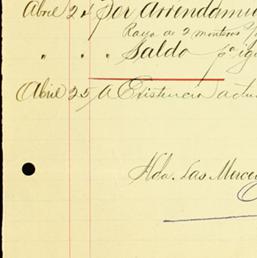 Abril 24 Por Arrendami
Raya de 2 montros
" " " Saldo pa ig
Abril 25 A Existencia actu
Hda. Las Merce